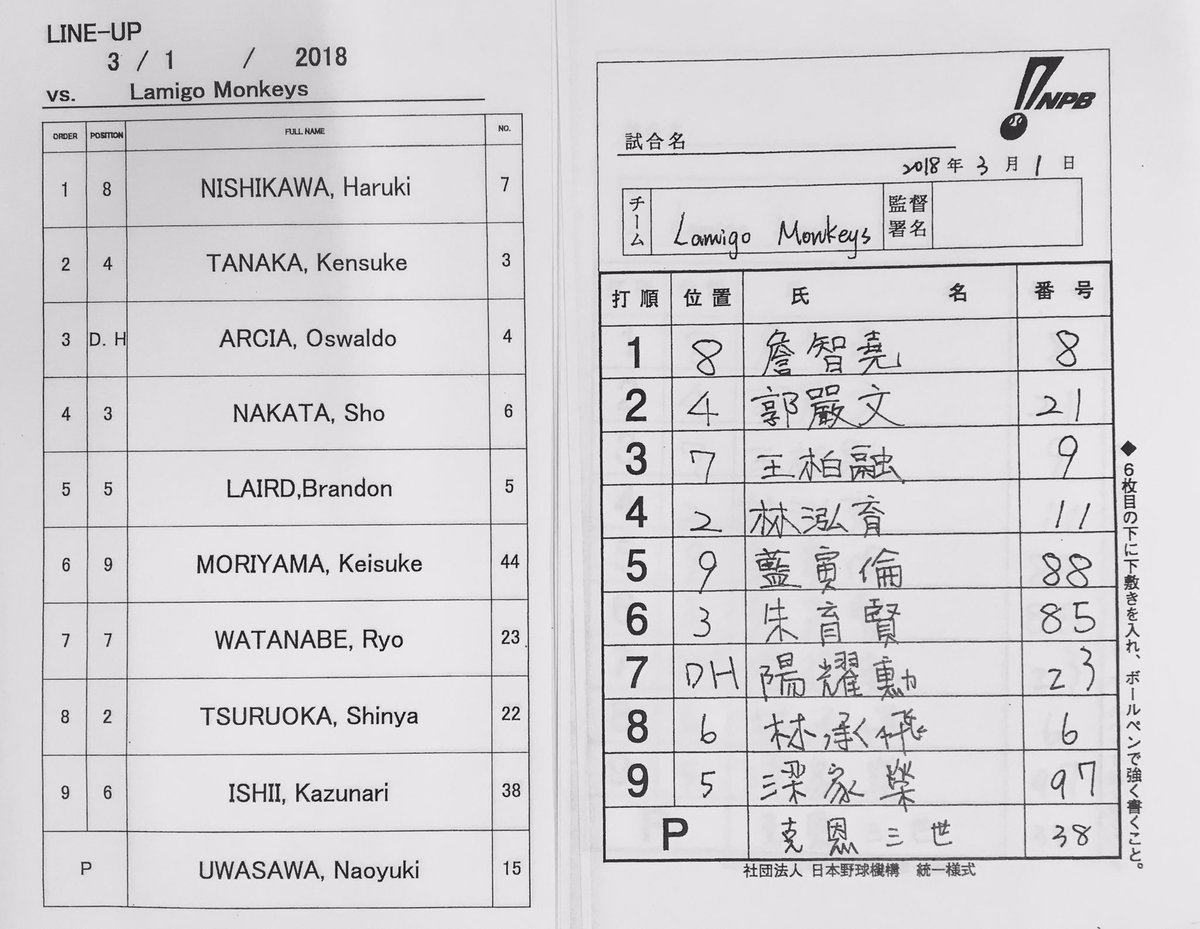 LINE-UP
3 / 1 / 2018
vs. Lamigo Monkeys
ORDER POSITION FULL NAME NO.
1 8 NISHIKAWA, Haruki 7
2 4 TANAKA, Kensuke 3
3 D. H ARCIA, Oswaldo 4
4 3 NAKATA, Sho 6
5 5 LAIRD,Brandon 5
6 9 MORIYAMA, Keisuke 44
7 7 WATANABE, Ryo 23
8 2 TSURUOKA, Shinya 22
9 6 ISHII, Kazunari 38
P UWASAWA, Naoyuki 15
NPB
試合名
2018年 3月 1日
チーム Lamigo Monkeys 監督署名
打順 位置 氏名 番号
1 8 詹智堯 8
2 4 郭嚴文 21
3 7 王柏融 9
4 2 林泓育 11
5 9 藍寅倫 88
6 3 朱育賢 85
7 DH 陽耀勳 23
8 6 林承飛 6
9 5 梁家榮 97
P 克恩三世 38
社団法人 日本野球機構 統一様式
◆6枚目の下に下敷きを入れ、ボールペンで強く書くこと。